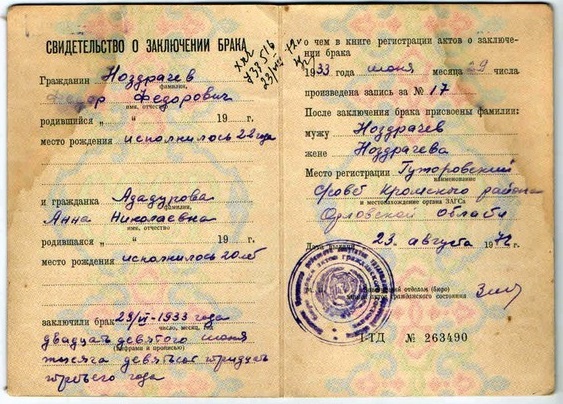 СВИДЕТЕЛЬСТВО О ЗАКЛЮЧЕНИИ БРАКА
Гражданин Ноздрачев
фамилия,
Федор Федорович
имя, отчество
родившийся „ “ 19 г.
место рождения исполнилось 22 года
и гражданка Ададурова
фамилия,
Анна Николаевна
имя, отчество
родившаяся „ “ 19 г.
место рождения исполнилось 20 лет
заключили брак 29/VI-1933 года
число, месяц,
двадцать девятого июня
(цифрами и прописью)
тысяча девятьсот тридцать
третьего года
о чем в книге регистрации актов о заключе-
нии брака
1933 года июня месяца 29 числа
произведена запись за № 17
После заключения брака присвоены фамилии:
мужу Ноздрачев
жене Ноздрачева
Место регистрации Гуторовский
наименование
с/совет Кромского района
и местонахождение органа ЗАГСа
Орловской области
Дата выдачи
23 августа 197 г.
отделом (бюро)
записи актов гражданского состояния
I-ТД № 263490